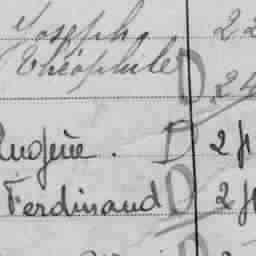 Joseph, 22
Théophile D 24
Eugène. D 2 fr
Ferdinand D 2 fr